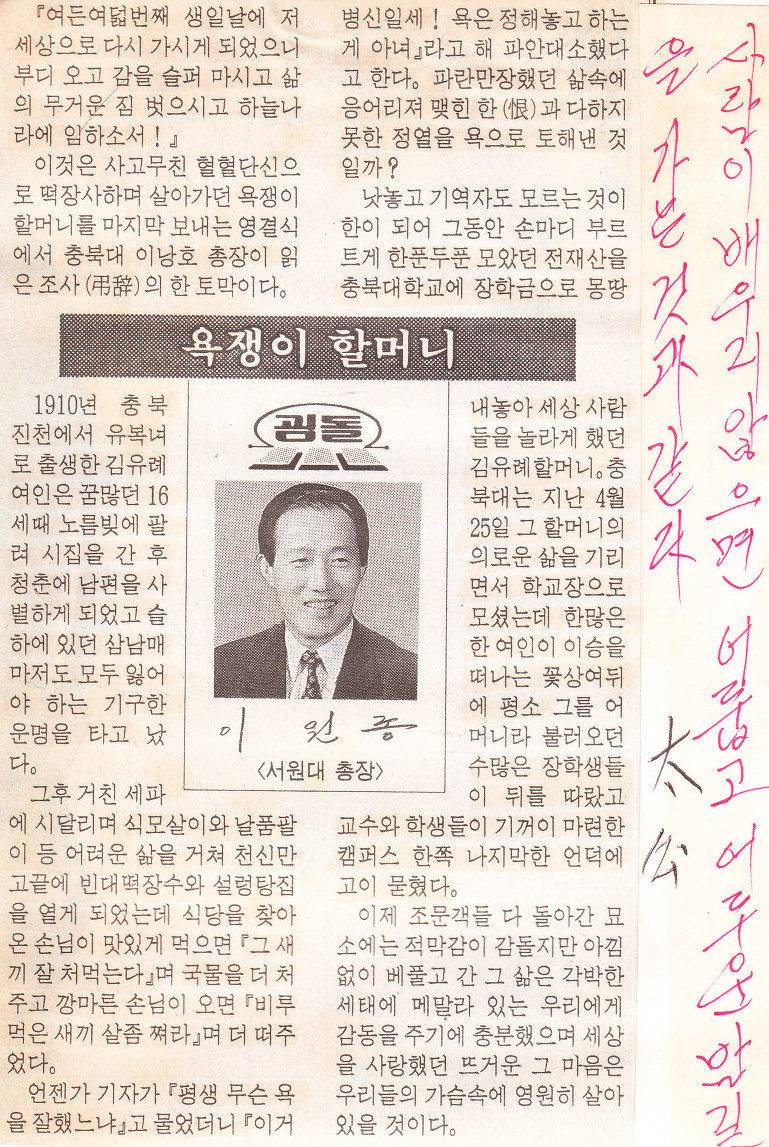 『여든여덟번째 생일날에 저
세상으로 다시 가시게 되었으니
부디 오고 감을 슬퍼 마시고 삶
의 무거운 짐 벗으시고 하늘나
라에 임하소서！』
이것은 사고무친 혈혈단신으
로 떡장사하며 살아가던 욕쟁이
할머니를 마지막 보내는 영결식
에서 충북대 이낭호 총장이 읽
은 조사(弔辞)의 한 토막이다.
욕쟁이 할머니
1910년 충북
진천에서 유복녀
로 출생한 김유례
여인은 꿈많던 16
세때 노름빚에 팔
려 시집을 간 후
청춘에 남편을 사
별하게 되었고 슬
하에 있던 삼남매
마저도 모두 잃어
야 하는 기구한
운명을 타고 났
다。
그후 거친 세파
에 시달리며 식모살이와 날품팔
이 등 어려운 삶을 거쳐 천신만
고끝에 빈대떡장수와 설렁탕집
을 열게 되었는데 식당을 찾아
온 손님이 맛있게 먹으면『그 새
끼 잘 처먹는다』며 국물을 더 처
주고 깡마른 손님이 오면『비루
먹은 새끼 살좀 쪄라』며 더 떠주
었다。
언젠가 기자가『평생 무슨 욕
을 잘했느냐』고 물었더니『이거
병신일세！ 욕은 정해놓고 하는
게 아녀』라고 해 파안대소했다
고 한다。 파란만장했던 삶속에
응어리져 맺힌 한(恨)과 다하지
못한 정열을 욕으로 토해낸 것
일까？
낫놓고 기역자도 모르는 것이
한이 되어 그동안 손마디 부르
트게 한푼두푼 모았던 전재산을
충북대학교에 장학금으로 몽땅
굄돌
이 원 종
〈서원대 총장〉
내놓아 세상 사람
들을 놀라게 했던
김유례할머니。충
북대는 지난 4월
25일 그 할머니의
의로운 삶을 기리
면서 학교장으로
모셨는데 한많은
한 여인이 이승을
떠나는 꽃상여뒤
에 평소 그를 어
머니라 불러오던
수많은 장학생들
이 뒤를 따랐고
교수와 학생들이 기꺼이 마련한
캠퍼스 한쪽 나지막한 언덕에
고이 묻혔다。
이제 조문객들 다 돌아간 묘
소에는 적막감이 감돌지만 아낌
없이 베풀고 간 그 삶은 각박한
세태에 메말라 있는 우리에게
감동을 주기에 충분했으며 세상
을 사랑했던 뜨거운 그 마음은
우리들의 가슴속에 영원히 살아
있을 것이다。
사람이 배우리 않으면 어둡고 어두운 밤길
을 가는것과 같다
太公